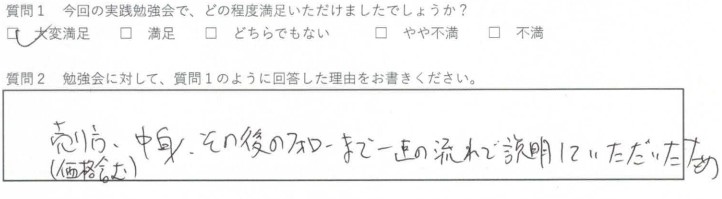 質問１　今回の実践勉強会で、どの程度満足いただけましたでしょうか？
☑ 大変満足　□ 満足　□ どちらでもない　□ やや不満　□ 不満
質問２　勉強会に対して、質問１のように回答した理由をお書きください。
売り方、中身、その後のフォローまで一連の流れで説明していただいたため
(価格含む)